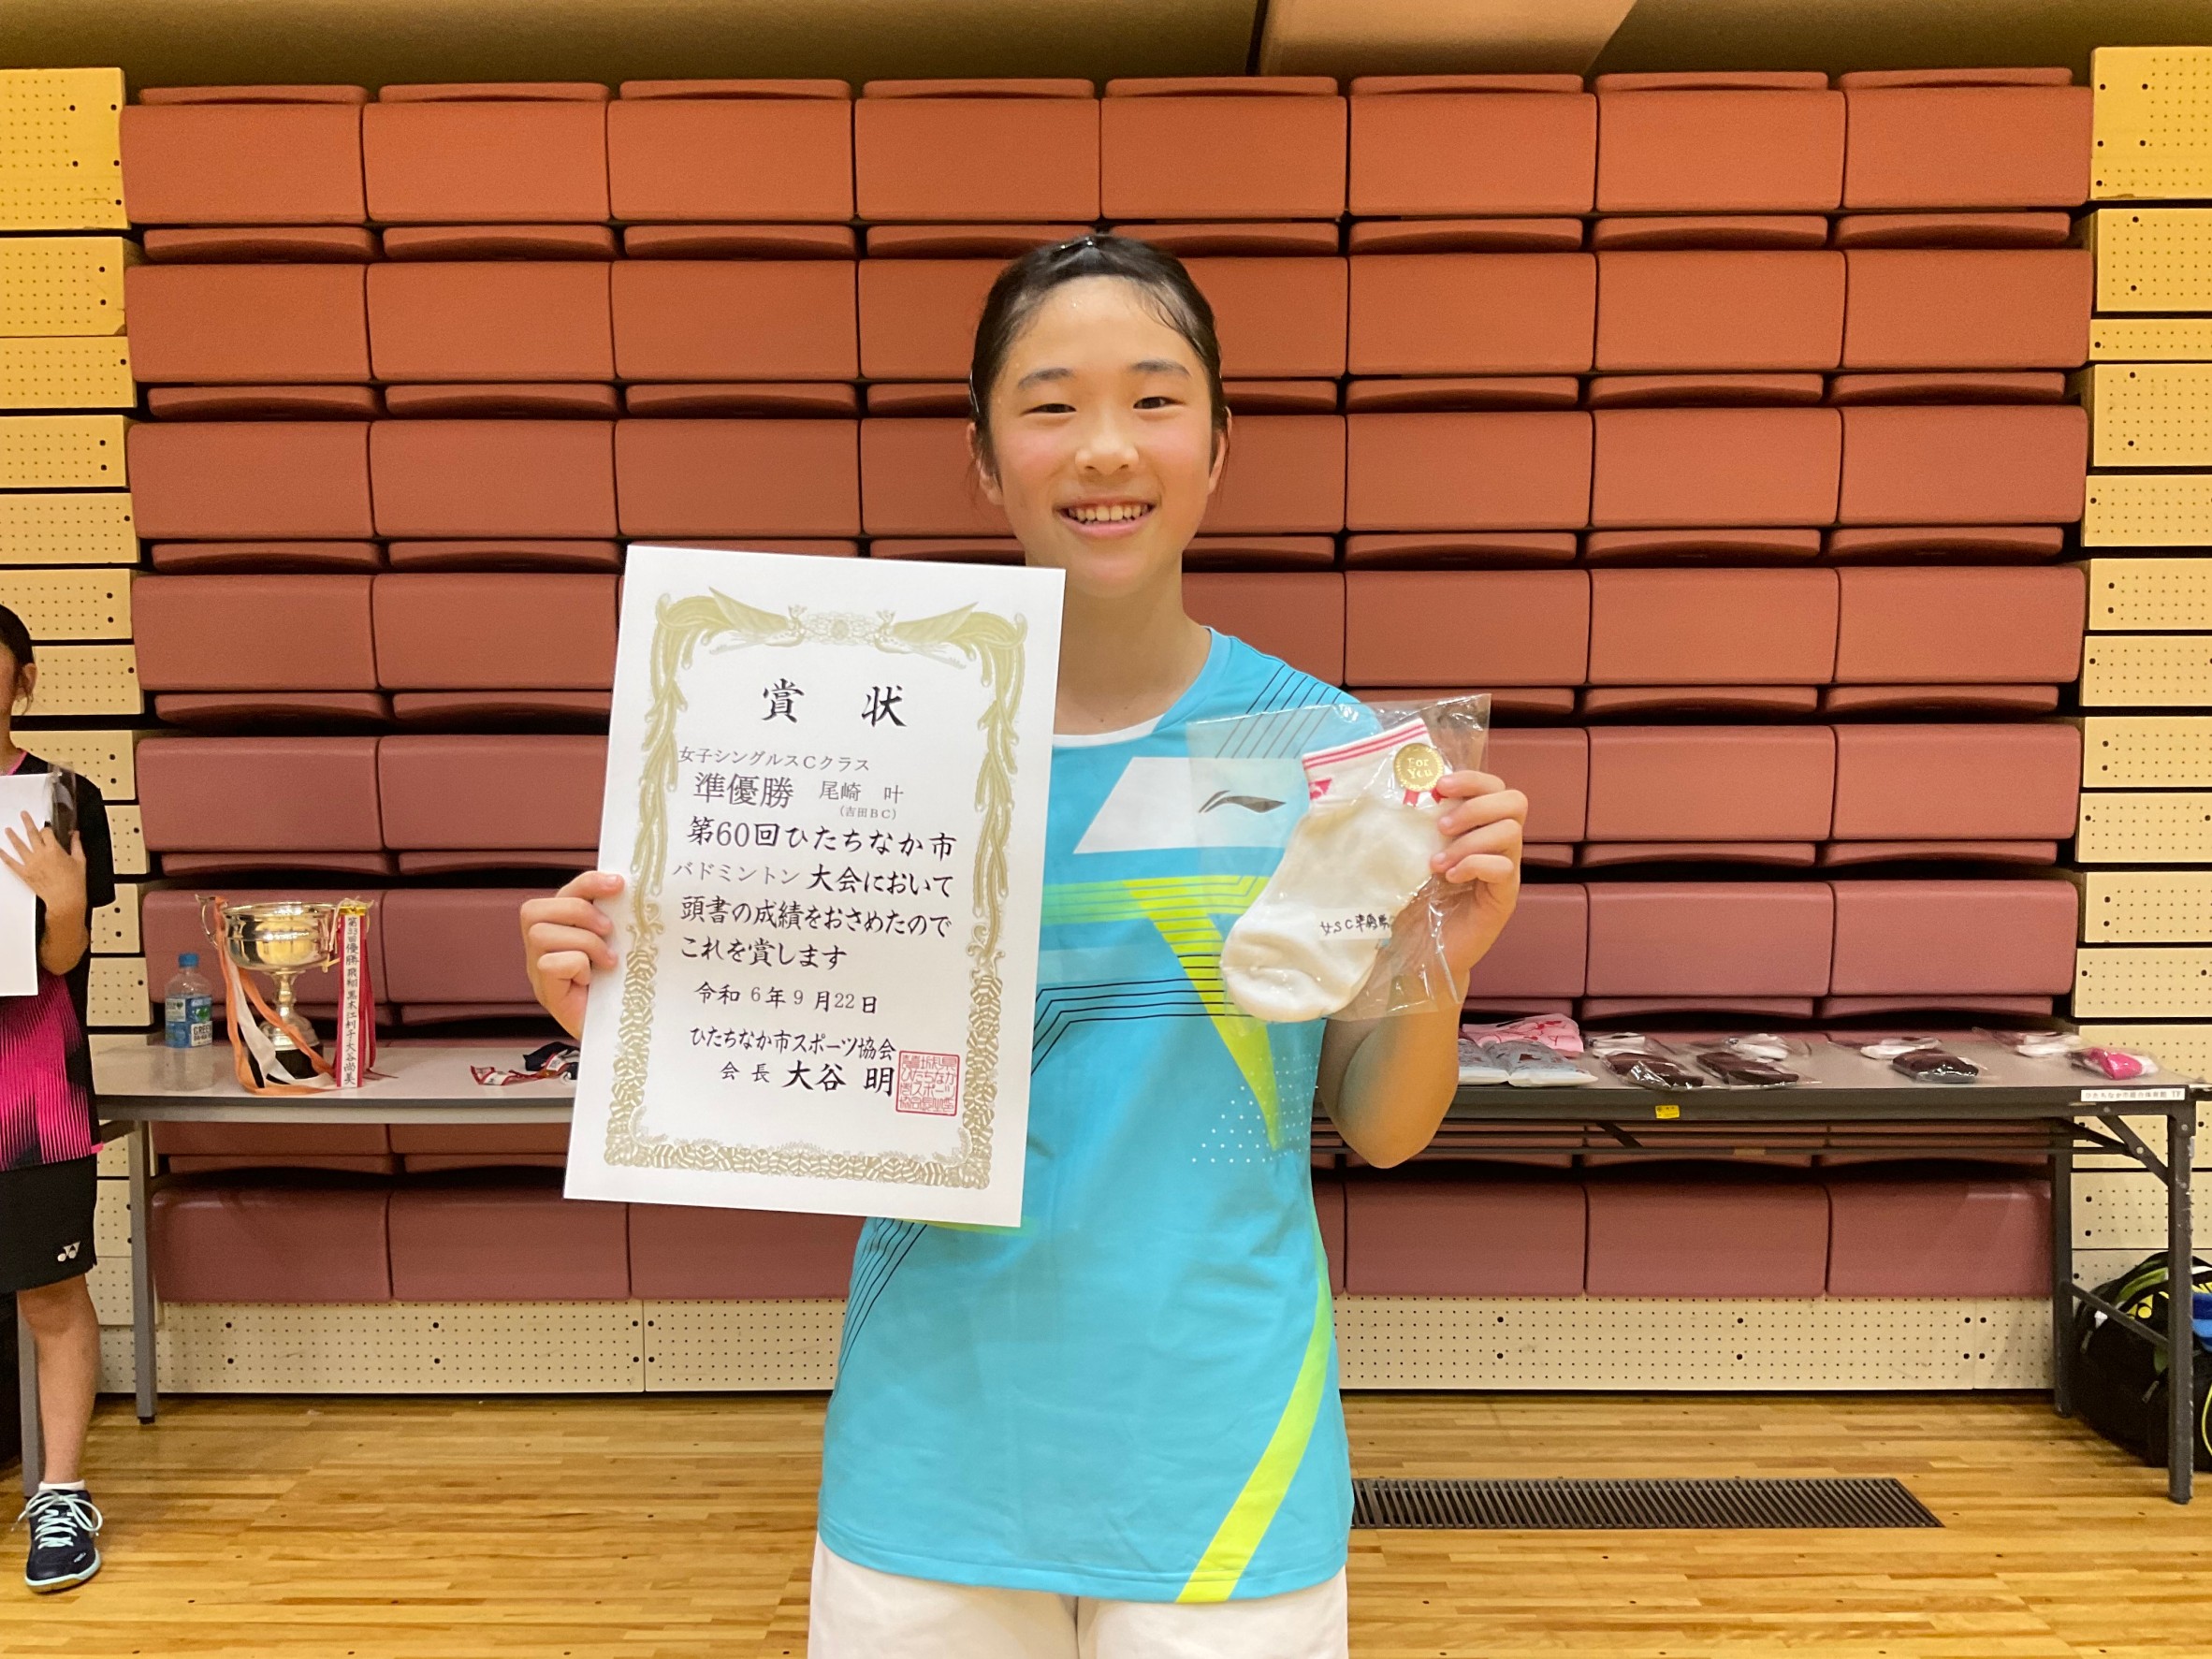 賞 状
女子シングルスCクラス
準優勝 尾崎 叶
(吉田BC)
第60回ひたちなか市
バドミントン大会において
頭書の成績をおさめたので
これを賞します
令和 6年 9月22日
ひたちなか市スポーツ協会
会 長 大谷 明
For
You
女SC準優勝
GREEN